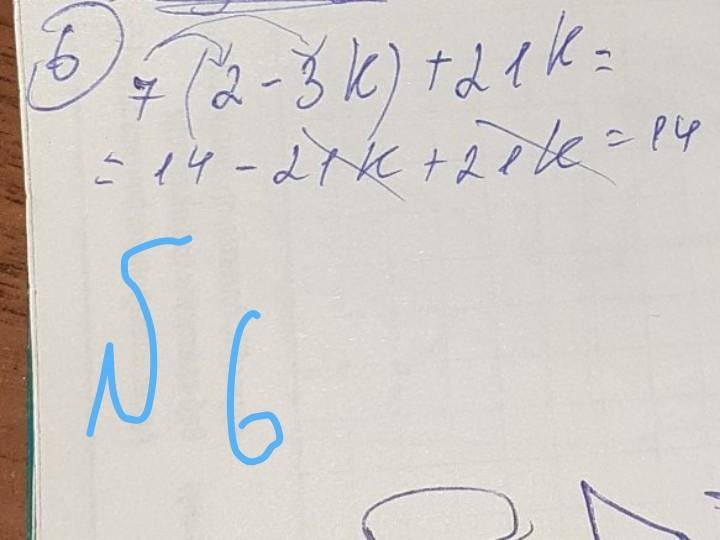 6 7(2-3k)+21k=
=14-21k+21k=14
№ 6